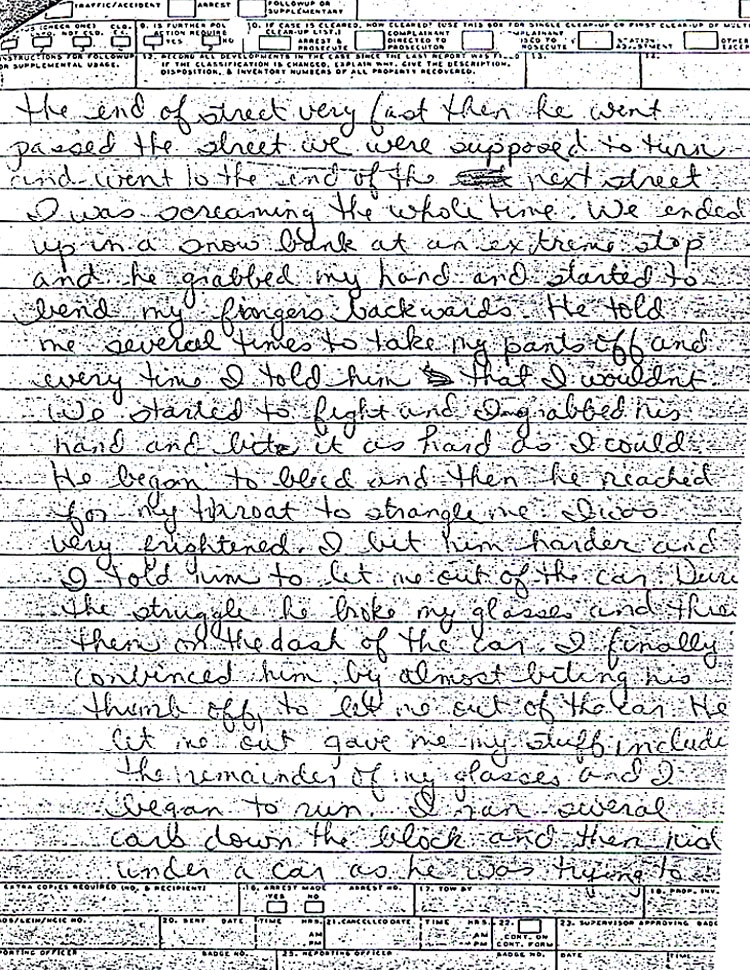 TRAFFIC/ACCIDENT ARREST FOLLOWUP OR
SUPPLEMENTARY
CHECK ONE) CLO.
9. IS FURTHER POL
ACTION REQUIRE
YES NO
10. IF CASE IS CLEARED, HOW CLEARED? (USE THIS BOX FOR SINGLE CLEAR-UP OR FIRST CLEAR-UP OF MULT
CLEAR-UP LIST.)
ARREST & PROSECUTE
COMPLAINANT DIRECTED TO PROSECUTOR
PROSECUTE
STATION ADJUSTMENT
OTHER
INSTRUCTIONS FOR FOLLOWUP
OR SUPPLEMENTAL USAGE.
12. RECORD ALL DEVELOPMENTS IN THE CASE SINCE THE LAST REPORT WAS
IF THE CLASSIFICATION IS CHANGED, EXPLAIN WHY. GIVE THE DESCRIPTION,
DISPOSITION, & INVENTORY NUMBERS OF ALL PROPERTY RECOVERED.
13.
14.
the end of street very fast then he went
passed the street we were supposed to turn
and went to the end of the next street.
I was screaming the whole time. We ended
up in a snow bank at an extreme stop
and he grabbed my hand and started to
bend my fingers backwards. He told
me several times to take my pants off and
every time I told him that I wouldnt
We started to fight and I grabbed his
hand and bite it as hard as I could.
He began to bleed and then he reached
for my throat to strangle me. I was
very frightened. I bit him harder and
I told him to let me out of the car. Duri
the struggle he broke my glasses and thre
them on the dash of the car. I finally
convinced him, by almost biting his
thumb off, to let me out of the car. He
let me out gave me my stuff include
the remainder of my glasses and I
began to run. I ran several
cars down the block and then hid
under a car as he was trying to
EXTRA COPIES REQUIRED (NO. & RECIPIENT)
16. ARREST MADE
YES NO
ARREST NO.
17. TOW BY
18. PROP. INV
ADS/LEIN/NCIC NO.
20. SENT DATE TIME HRS.
AM
PM
21. CANCELLED DATE TIME HRS.
AM
PM
22.
CONT. ON
CONT. FORM
23. SUPERVISOR APPROVING BADG
REPORTING OFFICER BADGE NO.
25. REPORTING OFFICER BADGE NO.
DATE TIME